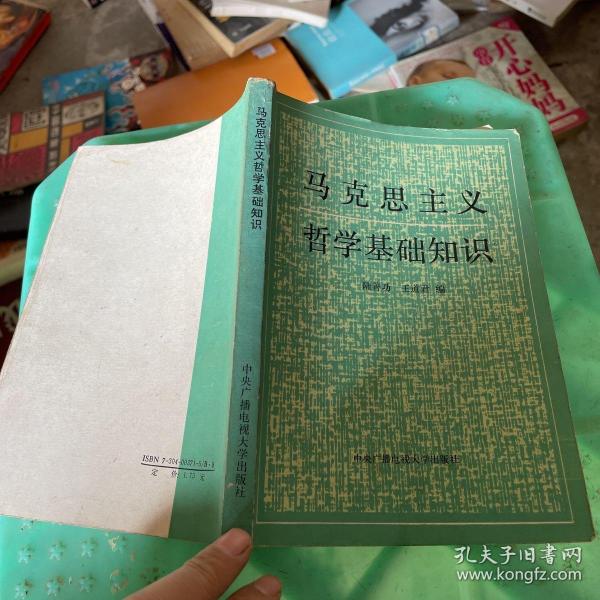 马克思主义
哲学基础知识
陆善功 王道君 编
中央广播电视大学出版社
马克思主义哲学基础知识
中央广播电视大学出版社
ISBN 7-304-00371-5/B·8
定 价：1.75 元
开心妈妈
孔夫子旧书网
www.kongfz.com